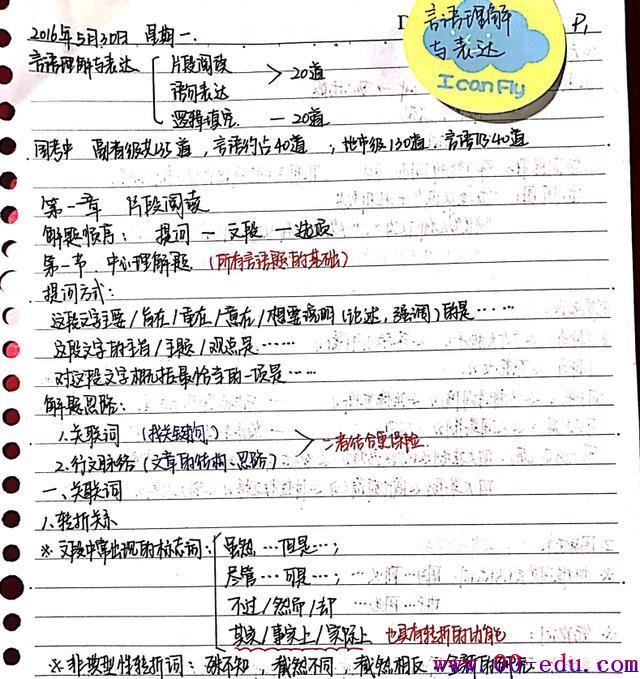 2016年5月30日 星期一.
言语理解与表达
I can Fly
P1
言语理解与表达 片段阅读 > 20道
语句表达
逻辑填空 — 20道
国考中 副省级共135道，言语约占40道；地市级130道，言语为40道
第一章 片段阅读
解题顺序：提问 — 文段 — 选项
第一节 中心理解题 (所有言语题的基础)
提问方式：
这段文字主要/旨在/重在/意在/想要说明(论述，强调)的是……
这段文字的主旨/主题/观点是……
对这段文字概括最恰当的一项是……
解题思路：
1.关联词 (找关键词)
>二者结合更保险
2.行文脉络 (文章的结构、思路)
一、关联词
1.转折关系
※文段中常出现的标志词： 虽然…但是…；
尽管…可是…；
不过/然而/却
其实/事实上/实际上 也具有转折的功能
※非典型性转折词：殊不知，截然不同，截然相反，全新的
www.00-edu.com